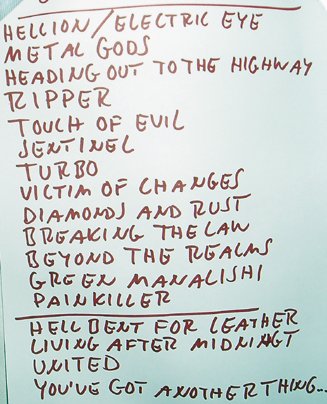 HELLION/ELECTRIC EYE
METAL GODS
HEADING OUT TO THE HIGHWAY
RIPPER
TOUCH OF EVIL
SENTINEL
TURBO
VICTIM OF CHANGES
DIAMONDS AND RUST
BREAKING THE LAW
BEYOND THE REALMS
GREEN MANALISHI
PAINKILLER
HELL BENT FOR LEATHER
LIVING AFTER MIDNIGHT
UNITED
YOU'VE GOT ANOTHER THING...